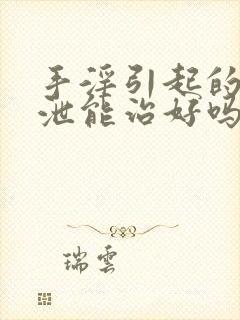 手淫引起的
泄能治好吗
瑞雲